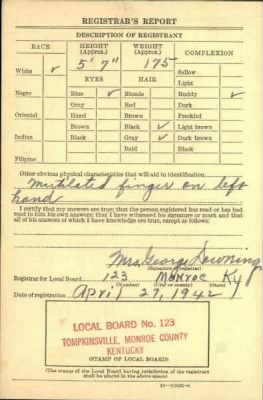 REGISTRAR'S REPORT
DESCRIPTION OF REGISTRANT
RACE HEIGHT (Approx.) WEIGHT (Approx.) COMPLEXION
5' 7" 175
White ✓ Sallow
EYES HAIR Light
Negro Blue ✓ Blonde Ruddy ✓
Gray Red Dark
Oriental Hazel Brown Freckled
Brown Black ✓ Light brown
Indian Black Gray ✓ Dark brown
Bald Black
Filipino
Other obvious physical characteristics that will aid in identification
Mutilated finger on left
hand
I certify that my answers are true; that the person registered has read or has had
read to him his own answers; that I have witnessed his signature or mark and that
all of his answers of which I have knowledge are true, except as follows:
Mrs George Downing
(Signature of registrar)
Registrar for Local Board 123 Monroe Ky
(Number) (City or county) (State)
Date of registration April 27, 1942
LOCAL BOARD No. 123
TOMPKINSVILLE, MONROE COUNTY
KENTUCKY
(STAMP OF LOCAL BOARD)
(The stamp of the Local Board having jurisdiction of the registrant
shall be placed in the above space)